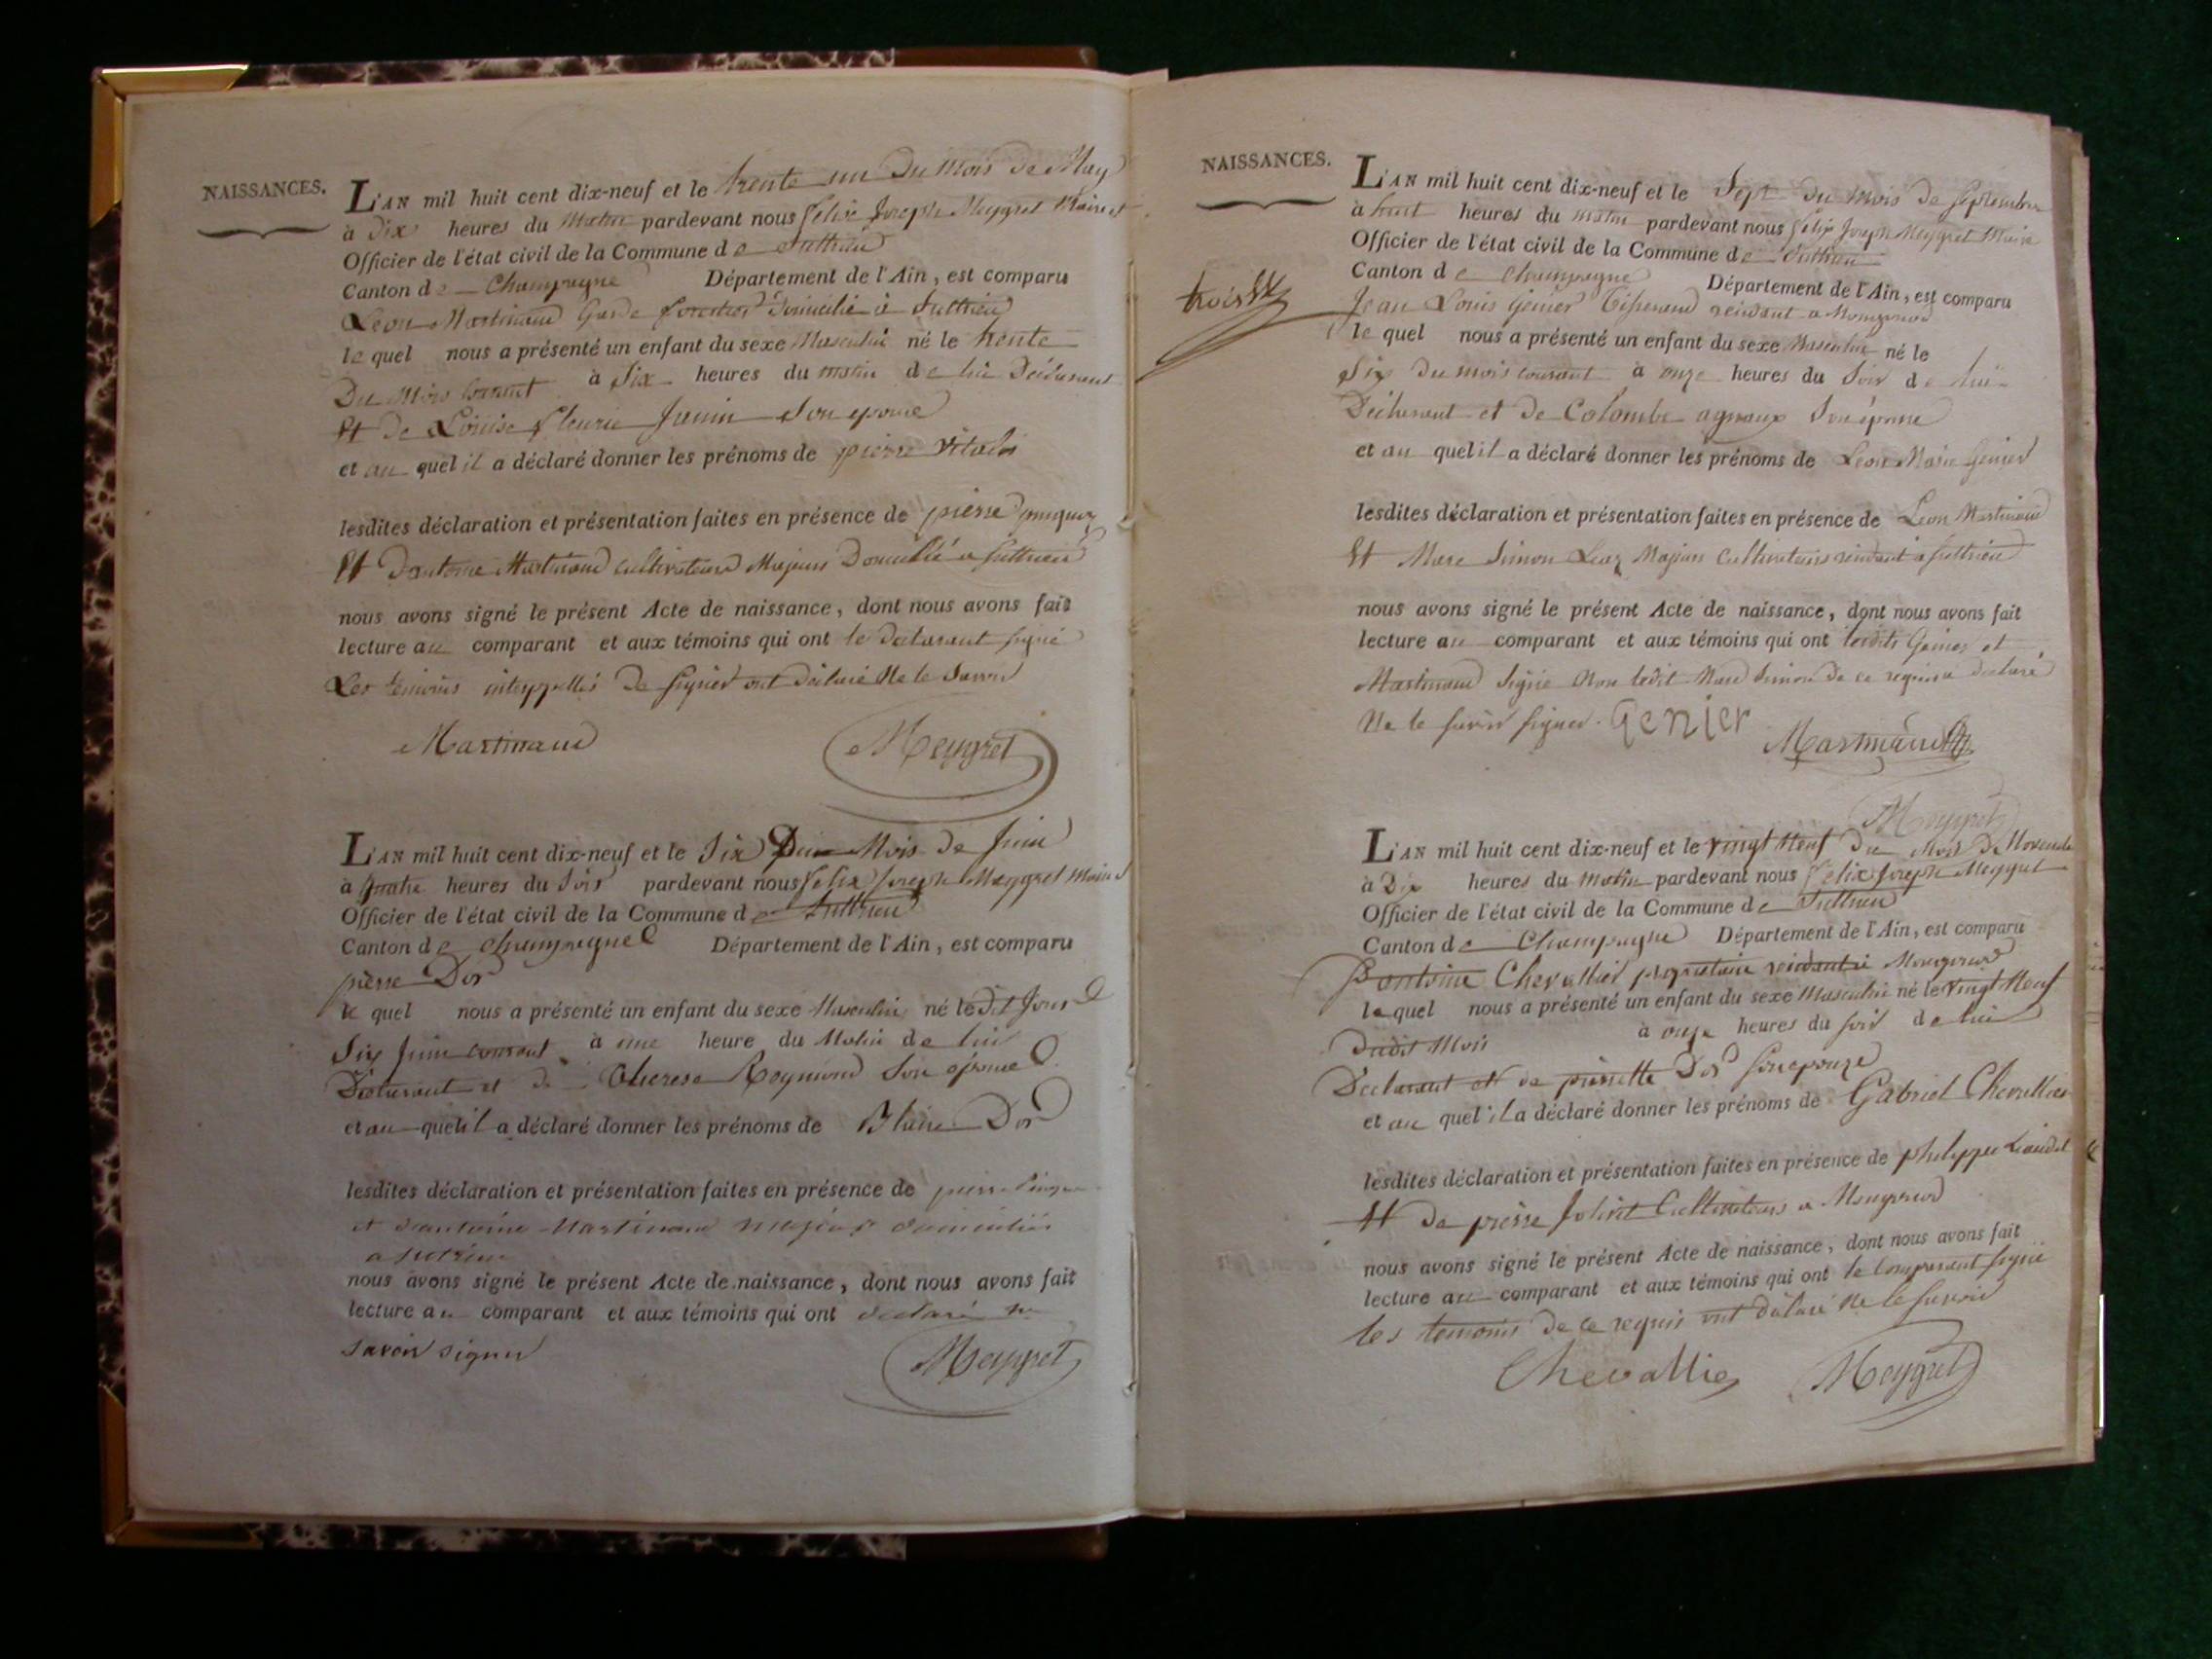 NAISSANCES.
L'AN mil huit cent dix-neuf et le trente un du mois de May
à dix heures du matin pardevant nous felix Joseph Meygret Maire et
Officier de l'état civil de la Commune de Suthrieu
Canton de Champagne Département de l'Ain, est comparu
Léon Martinand Garde forestier domicilié à Suthrieu
lequel nous a présenté un enfant du sexe Masculin né le trente
Du Mois courant à Six heures du matin de lui Déclarant
Et de Louise fleurie Janin Son epouse
et au quel il a déclaré donner les prénoms de pierre vitalis
lesdites déclaration et présentation faites en présence de pierre
Et d'antoine Martinand cultivateurs Majeurs Domicilié a Suthrieu
nous avons signé le présent Acte de naissance, dont nous avons fait
lecture au comparant et aux témoins qui ont le declarant signé
Les temoins interppellés de signer ont déclaré Ne le Savoir
Martinand Meygret
L'AN mil huit cent dix-neuf et le Six Du Mois de Juin
à quatre heures du Soir pardevant nous felix Joseph Meygret Maire
Officier de l'état civil de la Commune de Suthrieu
Canton de Champagne Département de l'Ain, est comparu
pierre Dor
le quel nous a présenté un enfant du sexe Masculin né le dit Jour
Six Juin courant à une heure du Matin de lui
Déclarant et de Therese Reymond Son epouse
et au quel il a déclaré donner les prénoms de Blaise Dor
lesdites déclaration et présentation faites en présence de pierre
et d'antoine Martinand majeurs domiciliés
a sutrieu
nous avons signé le présent Acte de naissance, dont nous avons fait
lecture au comparant et aux témoins qui ont declaré ne
savoir signer
Meygret
NAISSANCES.
trois
L'AN mil huit cent dix-neuf et le Sept du mois de Septembre
à huit heures du matin pardevant nous felix Joseph Meygret Maire
Officier de l'état civil de la Commune de Suthrieu
Canton de Champagne Département de l'Ain, est comparu
Jean Louis Genier Tisserand residant a Mongonod
le quel nous a présenté un enfant du sexe Masculin né le
Six du mois courant à onze heures du Soir de lui
Déclarant et de Colombe agnaux Son épouse
et au quel il a déclaré donner les prénoms de Leon Marie Genier
lesdites déclaration et présentation faites en présence de Leon Martinand
Et Marc Simon Majeurs Cultivateurs residant à Suthrieu
nous avons signé le présent Acte de naissance, dont nous avons fait
lecture au comparant et aux témoins qui ont lesdits Genier et
Martinand Signé Non ledit Marc Simon de ce requis a declaré
Ne le savoir signer. Genier
Martinand
Meygret
L'AN mil huit cent dix-neuf et le vingt Neuf du Mois de Novembre
à Dix heures du matin pardevant nous felix Joseph Meygret
Officier de l'état civil de la Commune de Suthrieu
Canton de Champagne Département de l'Ain, est comparu
antoine Chevallier proprietaire residant à Mongonod
lequel nous a présenté un enfant du sexe Masculin né le vingt Neuf
dudit Mois à onze heures du soir de lui
Déclarant et de pierrette Dor Son epouze
et au quel il a déclaré donner les prénoms de Gabriel Chevallier
lesdites déclaration et présentation faites en présence de philippe
Et de pierre Jolivet Cultivateurs a Mongonod
nous avons signé le présent Acte de naissance, dont nous avons fait
lecture au comparant et aux témoins qui ont le Comparant signé
les temoins de ce requis ont déclaré Ne le savoir
Chevallier Meygret